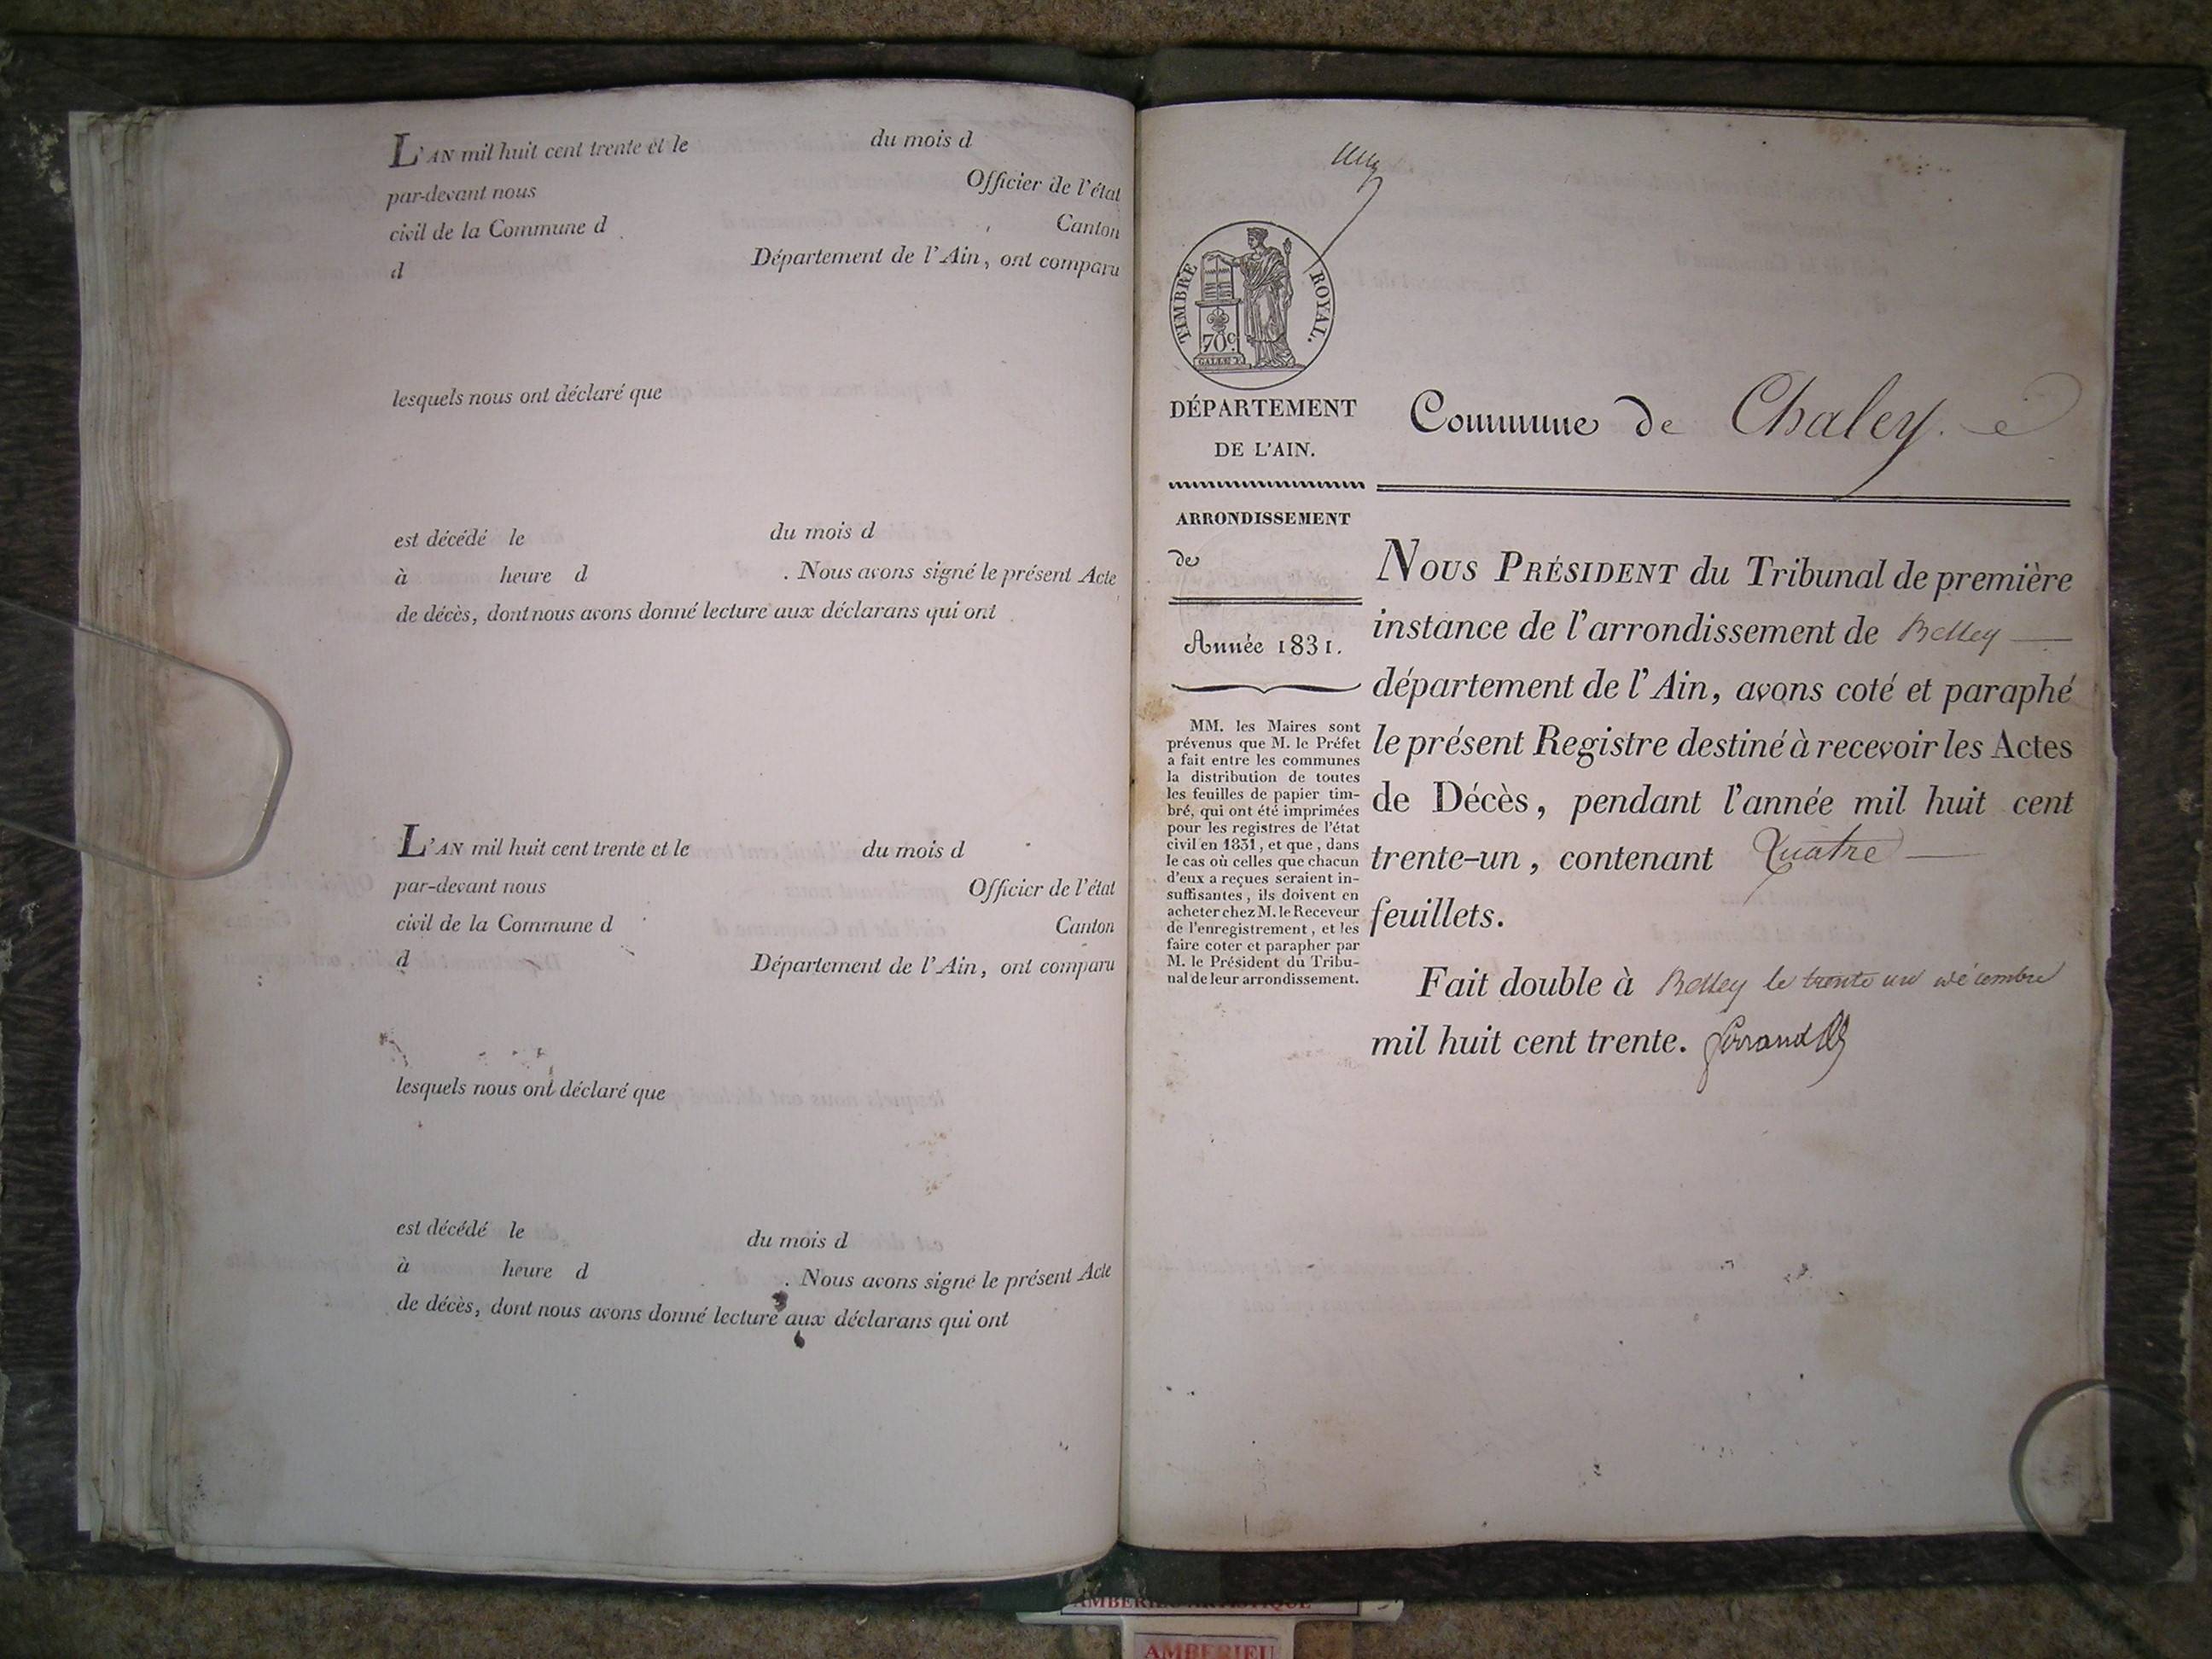 L'AN mil huit cent trente et le du mois d
par-devant nous Officier de l'état
civil de la Commune d Canton
d Département de l'Ain, ont comparu
lesquels nous ont déclaré que
est décédé le du mois d
à heure d . Nous avons signé le présent Acte
de décès, dont nous avons donné lecture aux déclarans qui ont
L'AN mil huit cent trente et le du mois d
par-devant nous Officier de l'état
civil de la Commune d Canton
d Département de l'Ain, ont comparu
lesquels nous ont déclaré que
est décédé le du mois d
à heure d . Nous avons signé le présent Acte
de décès, dont nous avons donné lecture aux déclarans qui ont
TIMBRE ROYAL.
70c
DÉPARTEMENT
DE L'AIN.
ARRONDISSEMENT
de
Année 1831.
MM. les Maires sont
prévenus que M. le Préfet
a fait entre les communes
la distribution de toutes
les feuilles de papier tim-
bré, qui ont été imprimées
pour les registres de l'état
civil en 1831, et que, dans
le cas où celles que chacun
d'eux a reçues seraient in-
suffisantes, ils doivent en
acheter chez M. le Receveur
de l'enregistrement, et les
faire coter et parapher par
M. le Président du Tribu-
nal de leur arrondissement.
Commune de Chaley.
NOUS PRÉSIDENT du Tribunal de première
instance de l'arrondissement de Belley
département de l'Ain, avons coté et paraphé
le présent Registre destiné à recevoir les Actes
de Décès, pendant l'année mil huit cent
trente-un, contenant Quatre
feuillets.
Fait double à Belley le trente un décembre
mil huit cent trente.
AMBERIEU ARTISTIQUE
AMBERIEU